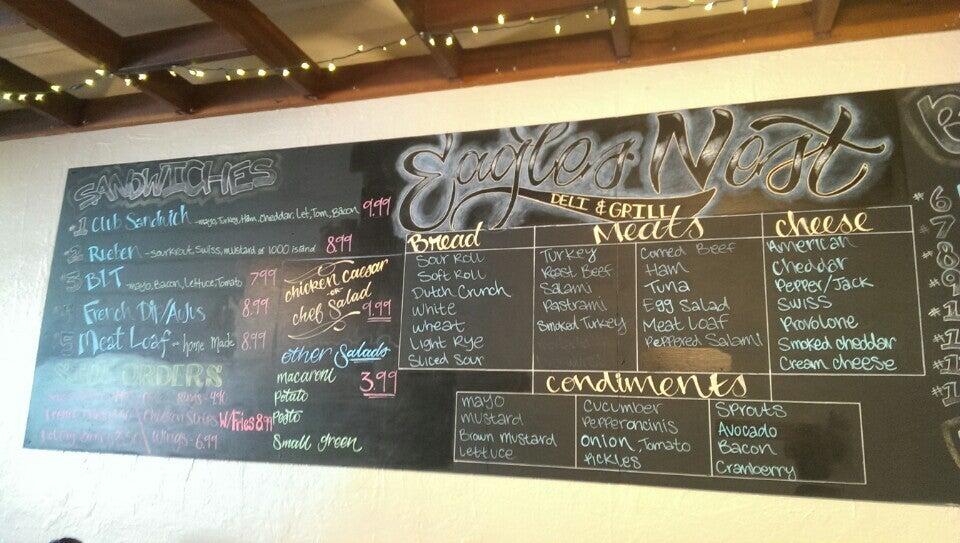 SANDWICHES
#1 Club Sandwich - mayo, Turkey, Ham, Cheddar, Let, Tom, Bacon 9.99
2 Rueben - sourkrout, Swiss, mustard or 1000 island 8.99
3 BLT - mayo, Bacon, Lettuce, Tomato 7.99
French Dip/AuJus 8.99
5 Meat Loaf - home Made 8.99
ORDERS
Chicken Strips W/Fries 8.99
Wings - 6.99
chicken Caesar
or
chef Salad
9.99
other Salads
macaroni 3.99
Potato
Pasto
Small green
Eagles Nest
DELI & GRILL
Bread
Sour Roll
Soft Roll
Dutch Crunch
White
Wheat
Light Rye
Sliced Sour
Meats
Turkey
Roast Beef
Salami
Pastrami
Smoked Turkey
Corned Beef
Ham
Tuna
Egg Salad
Meat Loaf
Peppered Salami
cheese
American
Cheddar
Pepper/Jack
SWISS
Provolone
Smoked cheddar
Cream cheese
condiments
mayo
mustard
Brown mustard
Lettuce
Cucumber
Pepperoncinis
onion, Tomato
Pickles
Sprouts
Avocado
Bacon
Cranberry
#6
7
8